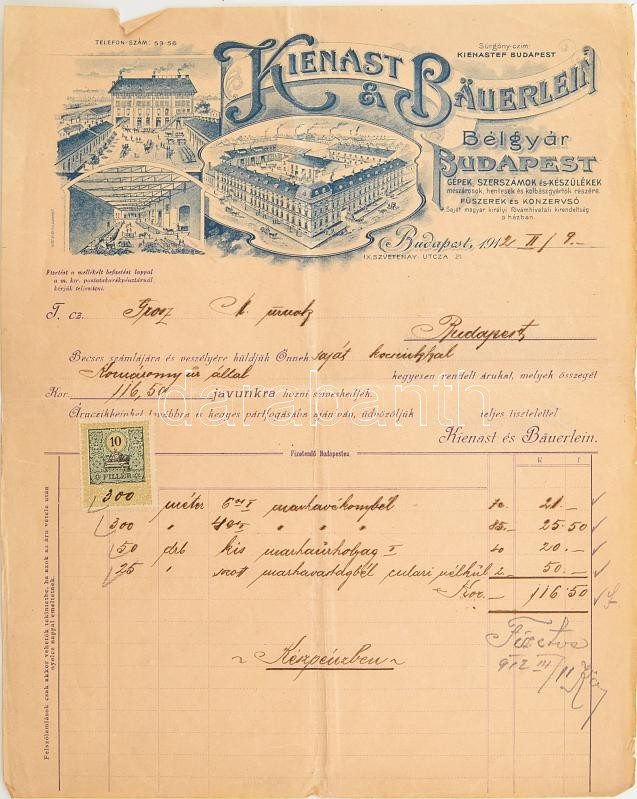 TELEFON-SZÁM: 53-56
Sürgöny-czim:
KIENASTEF BUDAPEST
KIENAST
& BÄUERLEIN
Bélgyár
BUDAPEST
GÉPEK, SZERSZÁMOK és KÉSZÜLÉKEK
mészárosok, hentesek és kolbászgyártók részére.
FŰSZEREK és KONZERVSÓ
Saját magyar királyi fővámhivatali kirendeltség
a házban.
Budapest, 1912 II/9.-
IX. SZVETENAY-UTCZA 21.
Fizetést a mellékelt befizetési lappal
a m. kir. postatakarékpénztárnál
kérjük teljesíteni.
T. cz. Grosz M. urnak
Budapest,
Becses számlájára és veszélyére küldjük Önnek saját kocsinkkal
által kegyesen rendelt árukat, melyek összegét
Kor. 116,50 javunkra hozni szíveskedjék.
Áruczikkeinket továbbra is kegyes pártfogásába ajánlván, üdvözöljük teljes tisztelettel
Kienast és Bäuerlein.
darabanth
10
FILLÉR
Fizetendő Budapesten.
K f
300 méter marhavékonybél 70. 21.-
300 " " " 85.- 25.50
50 drb kis marhahólyag I 40 20.-
25 " marhavastagbél nélkül 2.- 50.-
Kor.- 116.50
Készpénzben
Fizetve
912 III/11
Felszólamlások csak akkor vehetők tekintetbe, ha azok az áru vétele után
nyolcz nappal emeltetnek.